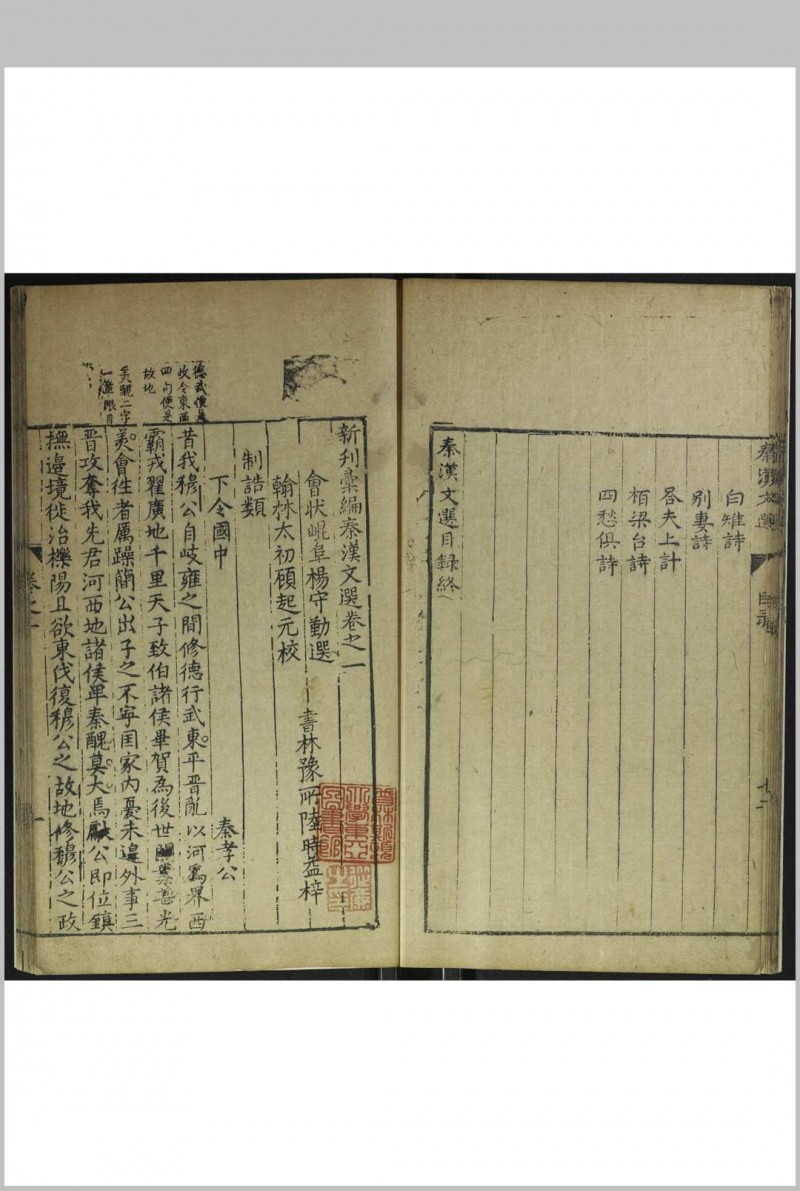 秦漢文選
目錄
白雉詩
別妻詩
答夫上計
栢梁台詩
四愁俱詩
秦漢文選目錄終
新刋彙編秦漢文選卷之一
會狀崐阜楊守勤選
翰林太初顧起元校
書林豫所陸時益梓
制誥類
下令國中
秦孝公
昔我穆公自岐雍之間修德行武東平晉亂以河爲界西
霸戎翟廣地千里天子致伯諸侯畢賀為後世開業甚光
美會徃者厲躁簡公出子之不寧囯家內憂未遑外事三
晉攻奪我先君河西地諸侯卑秦醜莫大焉獻公即位鎮
撫邊境徙治櫟陽且欲東伐復穆公之故地修穆公之政
德武便是
收令東西
四句便是
故地
美醜二字
卷之一